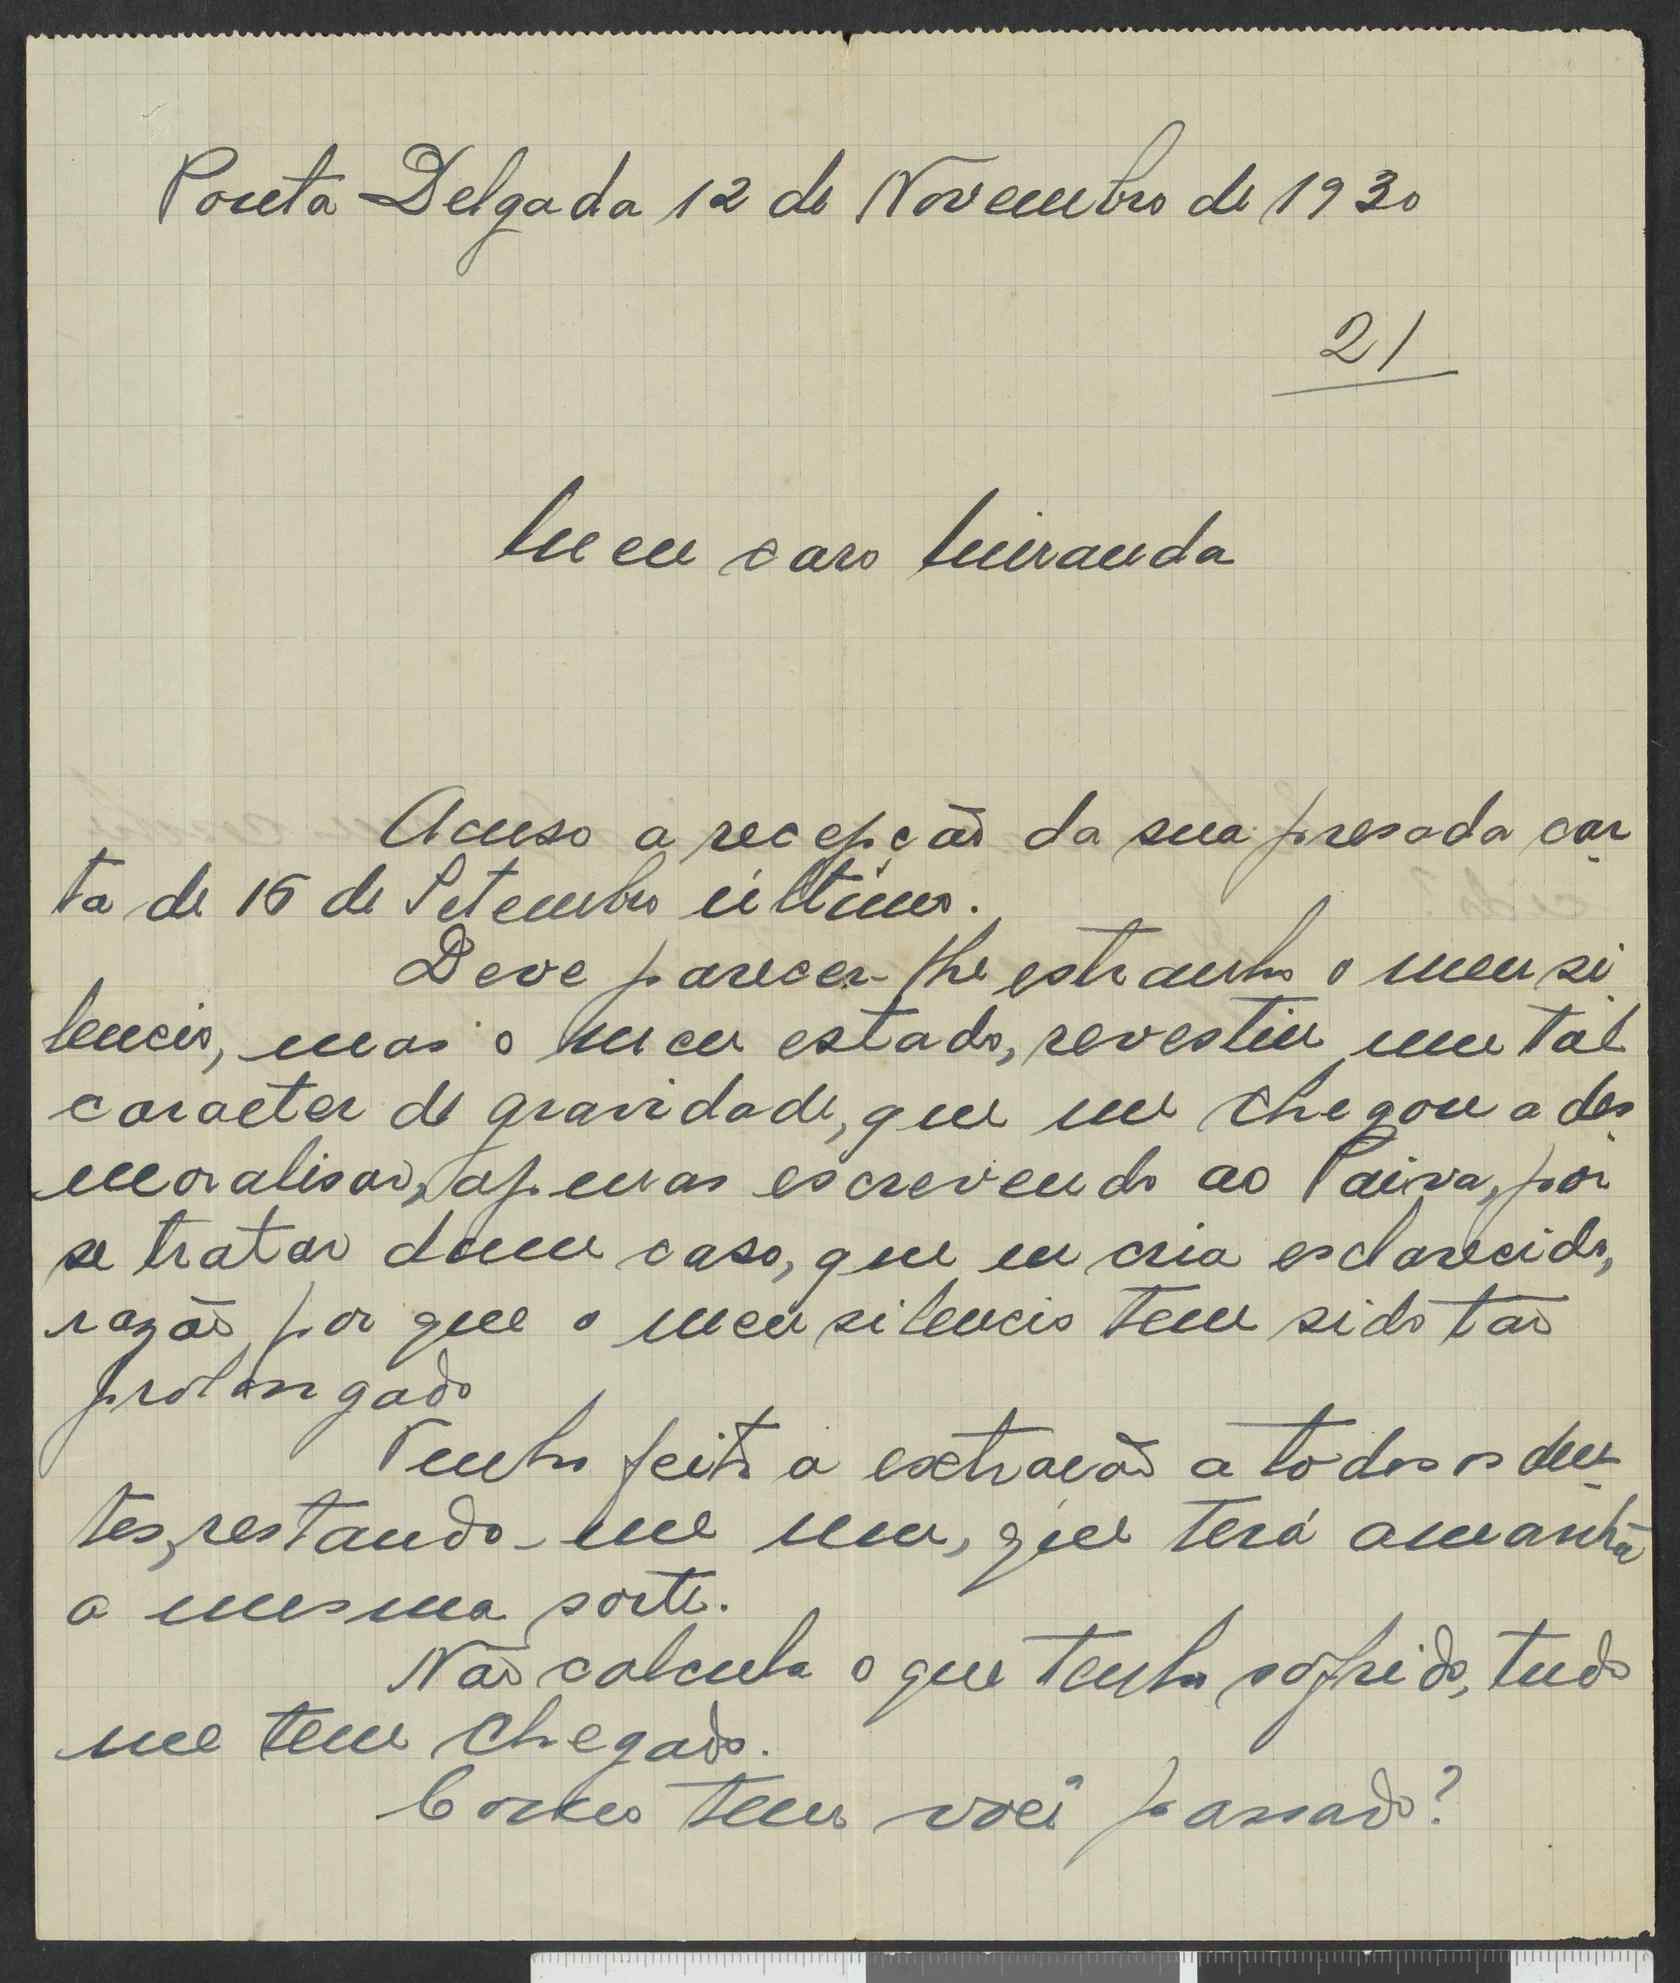 Ponta Delgada 12 de Novembro de 1930
21
Meu caro Miranda
Acuso a recepção da sua presada car
ta de 15 de Setembro último.
Deve parecer-lhe estranho o meu si
lencio, mas o meu estado, revestiu um tal
caracter de gravidade, que me chegou a des
moralisar, apenas escrevendo ao Paiva, por
se tratar dum caso, que eu cria esclarecido,
razão por que o meu silencio tem sido tão
prolongado
Tenho feito a extração a todos os den
tes, restando-me um, que terá amanhã
a mesma sorte.
Não calcula o que tenho sofrido, tudo
me tem chegado.
Como tem você passado?